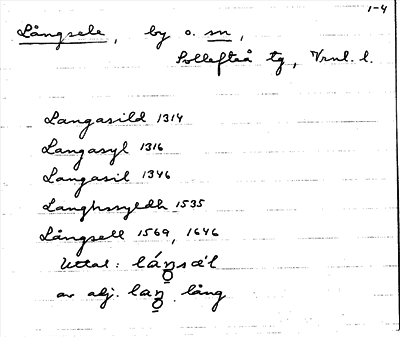 1-4
Långsele, by o. sn,
Sollefteå tg, Vrnl. l.
Langasild 1314
Langasyl 1316
Langasil 1346
Langhssyldh 1535
Långsell 1569, 1646
Uttal: láŋsæ'l
av adj. laŋ lång